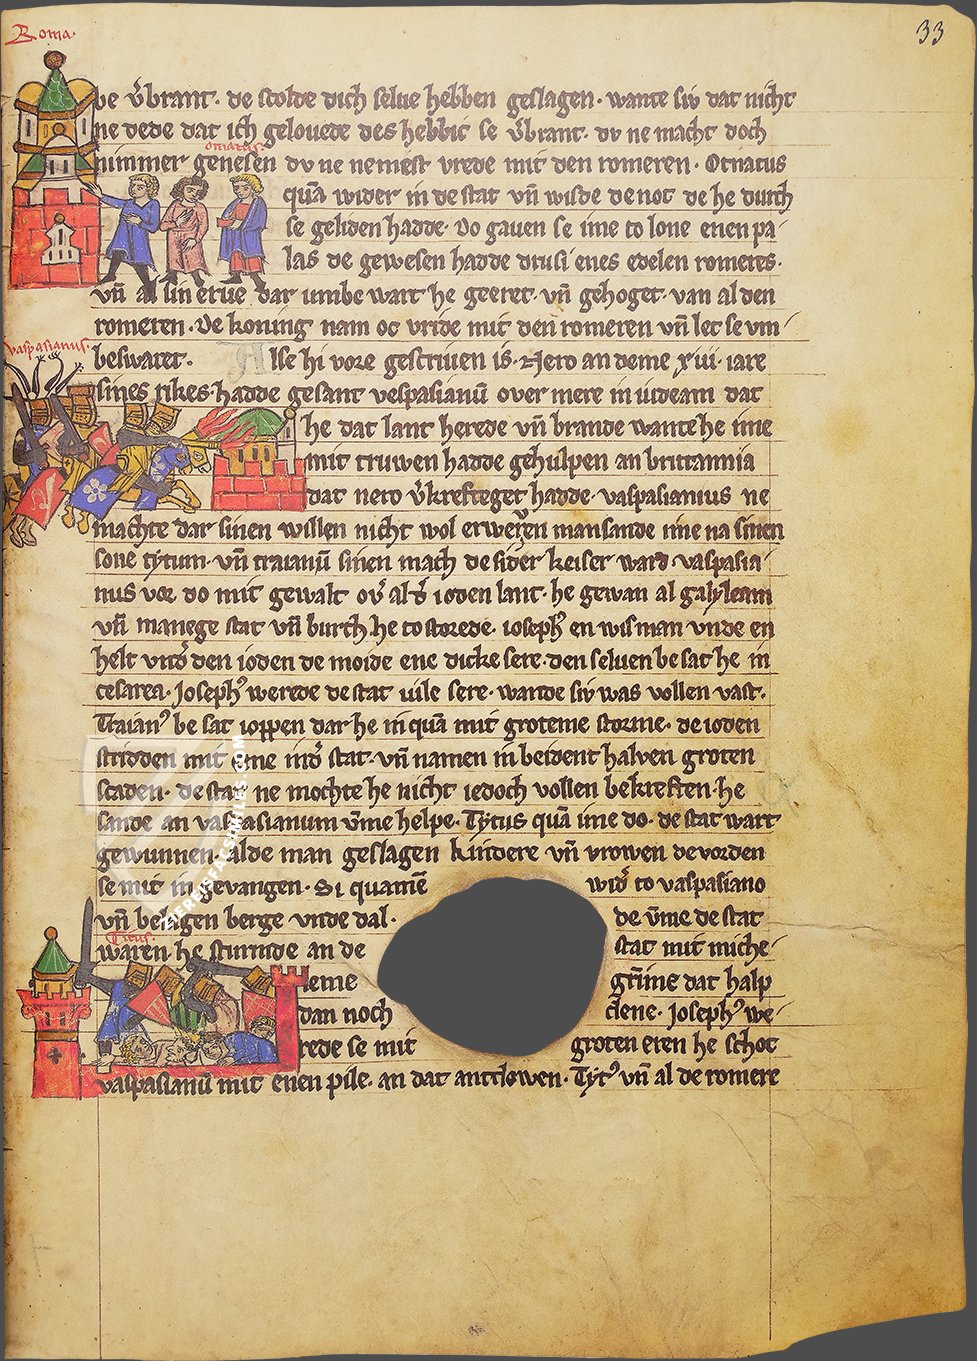 Roma.
33
be v̄brant. de scolde dich selue hebben geslagen. wante siv dat nicht
ne dede dat ich gelouede des hebbic se v̄brant. dv ne macht doch
otnatus.
nimmer genesen dv ne nemest vrede mit den romeren. Otnatus
quā wider in de stat vn̄ wisde de not de he durch
se geliden hadde. Do gauen se ime to lone enen pa
las de gewesen hadde drusi enes edelen romeres.
vn̄ al sin erue dar umbe wart he geeret. vn̄ gehoget. van al den
romeren. De koning nam oc vride mit den romeren vn̄ let se vm
vaspasianus.
beswaret. Alse hi vore gescriuen is. Nero an deme xiii. iare
sines rikes. hadde gesant vespasianū over mere in iudeam dat
he dat lant herede vn̄ brande wante he ime
mit truwen hadde gehulpen an brittannia
dat nero v̄krefteget hadde. vaspasianius ne
machte dar sinen willen nicht wol erweruen man sande ime na sinen
sone tytum. vn̄ traianū sinen mach de sider keiser ward. vaspasia
nus vor do mit gewalt ov̄ al d̄ ioden lant. he gewan al galyleam
vn̄ manege stat vn̄ burch he to storede. ioseph᾿ en wis man vnde en
helt vnd̄ den ioden de moide ene dicke sere. den seluen be sat he in
cesarea. Joseph᾿ werede de stat uile sere. wande siv was vollen vast.
Traian᾿ be sat ioppen dar he in quā mit groteme storme. de ioden
stridden mit eme in d̄ stat. vn̄ namen in beident halven groten
scaden. de stat ne mochte he nicht iedoch vollen bekreften. he
sande an vaspasianum v̄me helpe. Tytus quā ime do. de stat wart
gewunnen. alde man geslagen kindere vn̄ vrowen de vorden
se mit in gevangen. Si quamē wid̄ to vaspasiano
vn̄ belagen berge vnde dal. de v̄me de stat
Titus.
waren. he sturmde an de stat mit miche
leme gr̄ime dat halp
dan noch clene. Joseph᾿ we
rede se mit groten eren he schot
vaspasianū mit enen pile. an dat antlowen. Tyt᾿ vn̄ al de romere